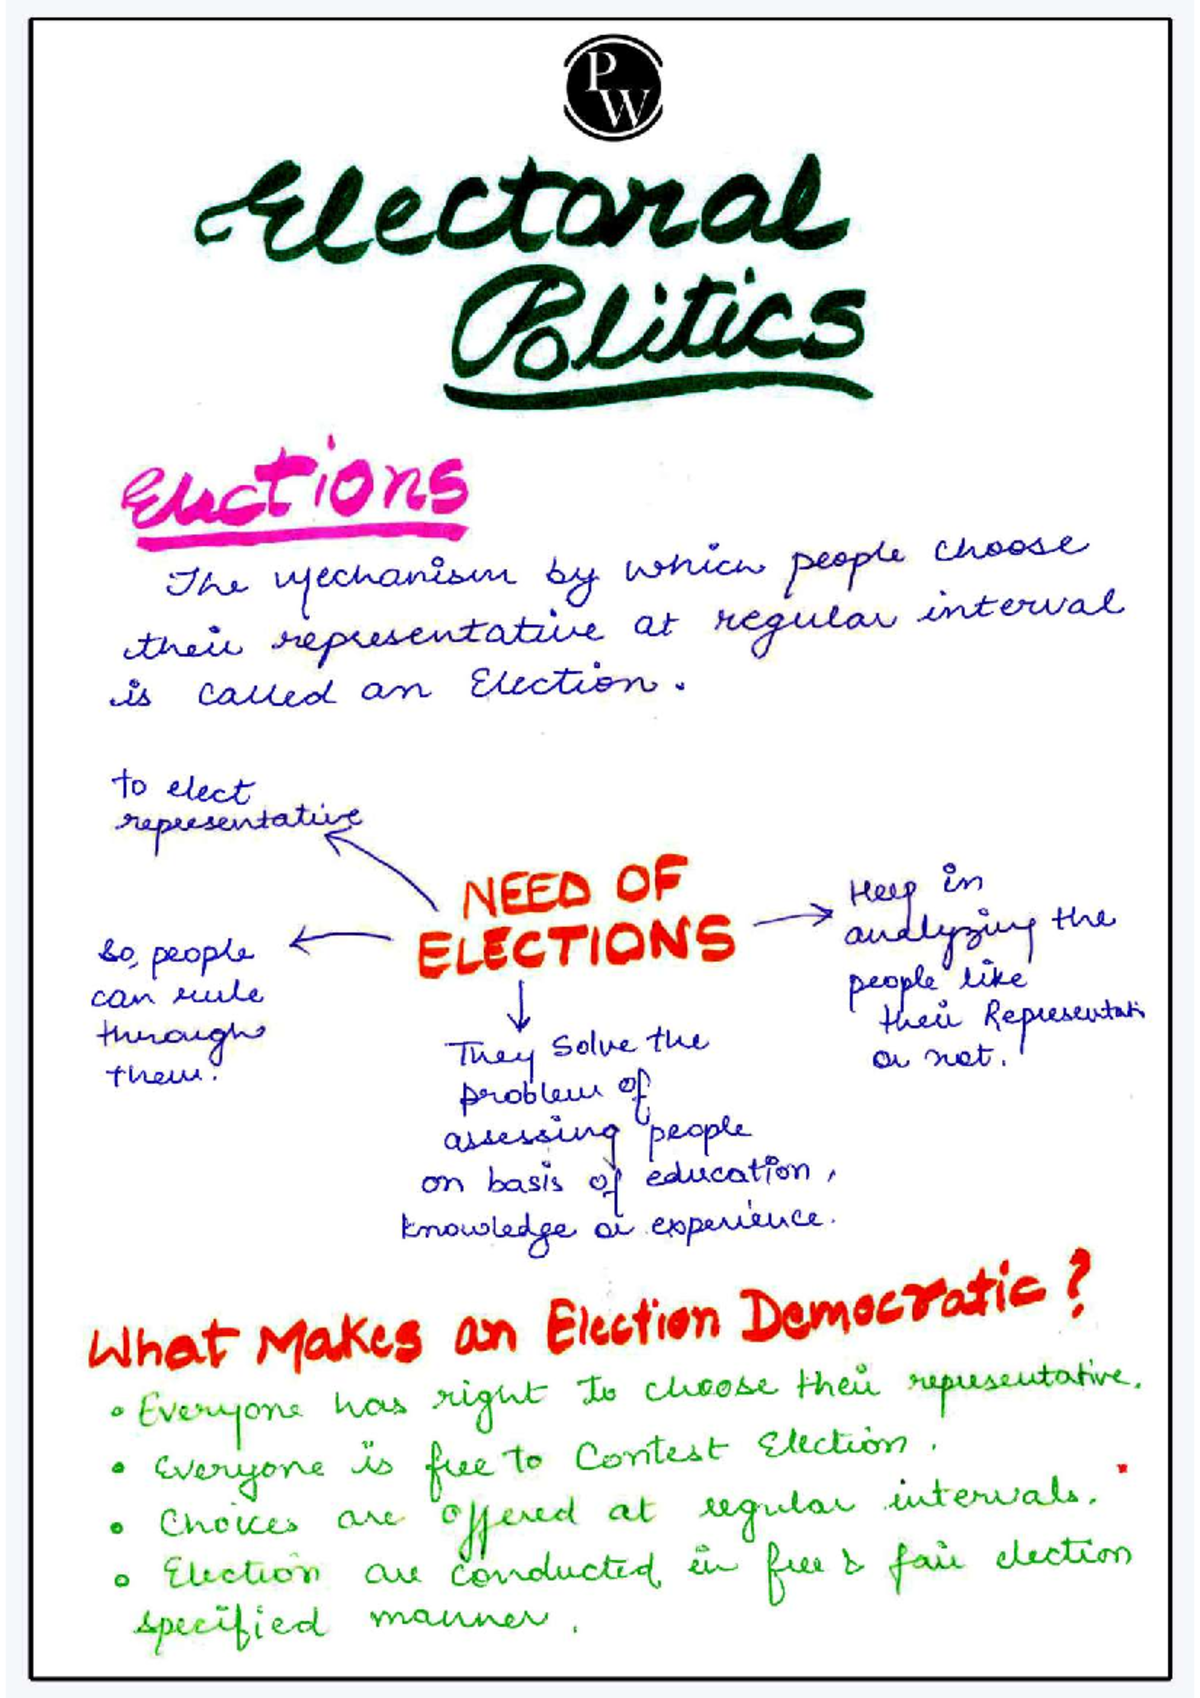 PW
Electoral
Politics
Elections
The mechanism by which people choose
their representative at regular interval
is called an Election.
to elect
representative
NEED OF
ELECTIONS
So, people
can rule
through
them.
They solve the
problem of
assessing people
on basis of education,
knowledge or experience.
Help in
analyzing the
people like
their Representati
or not.
What Makes an Election Democratic?
• Everyone has right to choose their representative.
• Everyone is free to Contest Election.
• Choices are offered at regular intervals.
• Election are conducted in free & fair election
specified manner.